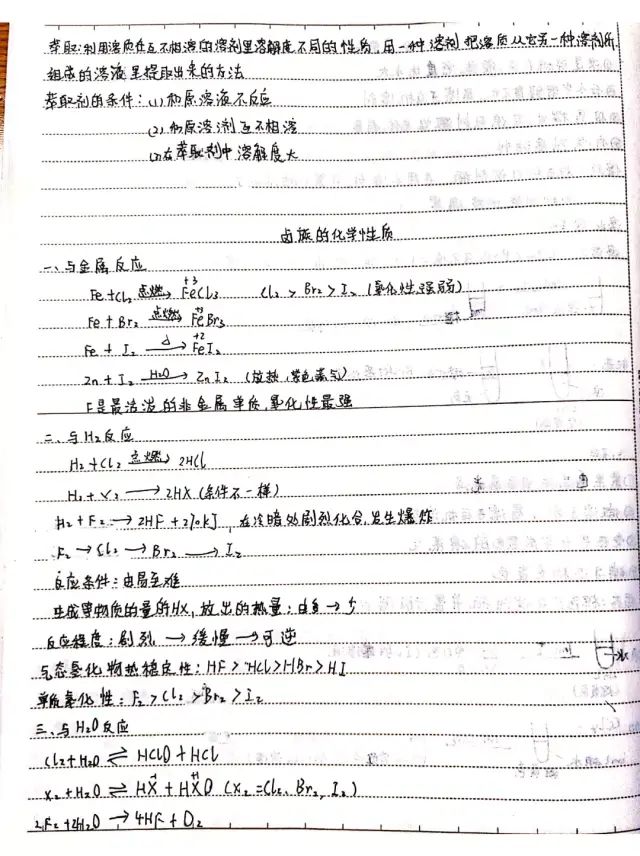 萃取:利用溶质在互不相溶的溶剂里溶解度不同的性质,用一种溶剂把溶质从它另一种溶剂所
组成的溶液里提取出来的方法
萃取剂的条件:(1)和原溶液不反应
(2)和原溶剂互不相溶
(3)在萃取剂中溶解度大
卤族的化学性质
一、与金属反应
Fe+Cl₂ 点燃→ FeCl₃ (+3) Cl₂>Br₂>I₂ (氧化性强弱)
Fe+Br₂ 点燃→ FeBr₃ (+3)
Fe+I₂ △→ FeI₂ (+2)
Zn+I₂ H₂O→ ZnI₂ (放热,紫色蒸气)
F是最活泼的非金属单质,氧化性最强
二、与H₂反应
H₂+Cl₂ 点燃 2HCl
H₂+X₂ → 2HX (条件不一样)
H₂+F₂ → 2HF+270kJ,在冷暗处剧烈化合,发生爆炸
F₂→Cl₂→Br₂→I₂
反应条件:由易至难
生成等物质的量的HX,放出的热量:由多→少
反应程度:剧烈→缓慢→可逆
气态氢化物热稳定性:HF>HCl>HBr>HI
单质氧化性:F₂>Cl₂>Br₂>I₂
三、与H₂O反应
Cl₂+H₂O ⇌ HClO+HCl
X₂+H₂O ⇌ HX+HXO (X₂=Cl₂、Br₂、I₂)
2F₂+2H₂O → 4HF+O₂